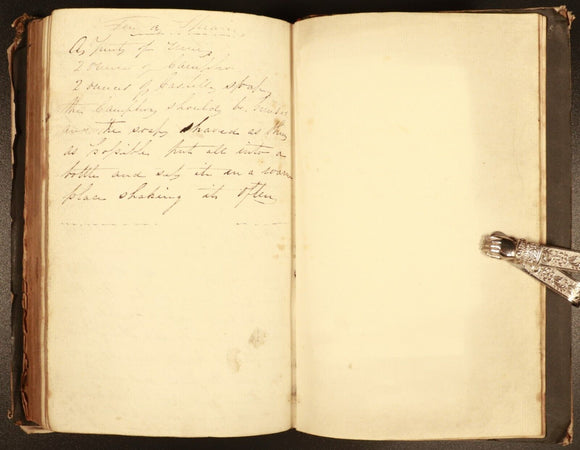 For a Sprain
A pint of
2 ounces of Camphor
2 ounces of Castille soap
the Camphor should be
and the soap shaved as thin
as possible put all into a
bottle and set it in a warm
place shaking it often